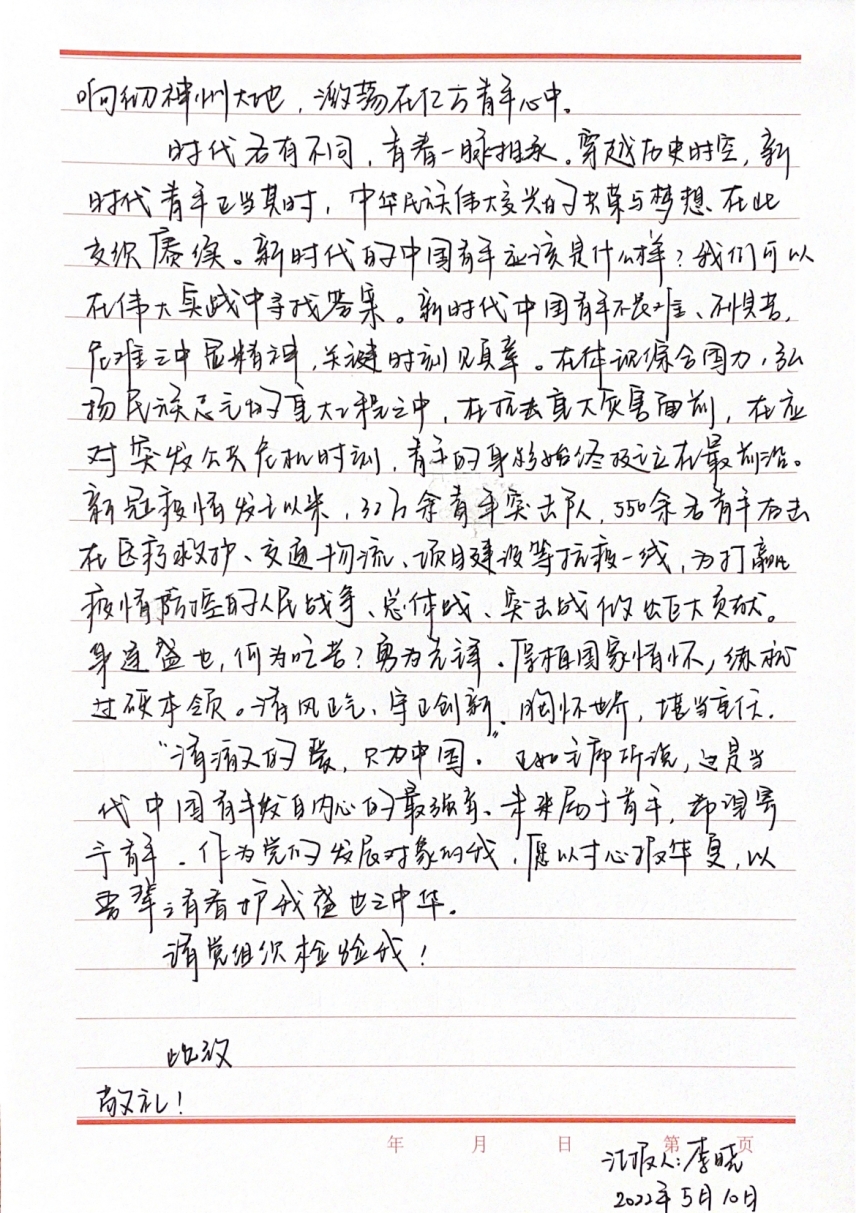 响彻神州大地，激荡在亿万青年心中。
时代各有不同，青春一脉相承。穿越历史时空，新
时代青年正当其时，中华民族伟大复兴的光荣与梦想、在此
交织赓续。新时代的中国青年应该是什么样？我们可以
在伟大实践中寻找答案。新时代中国青年不畏难、不惧苦，
危难之中显精神，关键时刻见真章。在体现综合国力，弘
扬民族志气的重大工程之中，在抗击重大灾害面前，在应
对突发公共危机时刻，青年的身影始终挺立在最前沿。
新冠疫情发生以来，32万余青年突击队，550余名青年石击
在医疗救护、交通物流、项目建设等抗疫一线，为打赢
疫情防控的人民战争、总体战、突击战做出巨大贡献。
身逢盛世，何为吃苦？勇为先锋。厚植国家情怀，练松
过硬本领。清风正气、守正创新，胸怀世界，堪当重任。
“清澈的爱，只为中国。”正如主席所说，这是当
代中国青年发自内心的最强音、未来属于青年，希望寄
于青年。作为党的发展对象的我，愿以寸心报华夏，以
吾辈青春护我盛世之中华。
请党组织检验我！
此致
敬礼！
年 月 日 第 页
汇报人：李晓
2022年5月10日